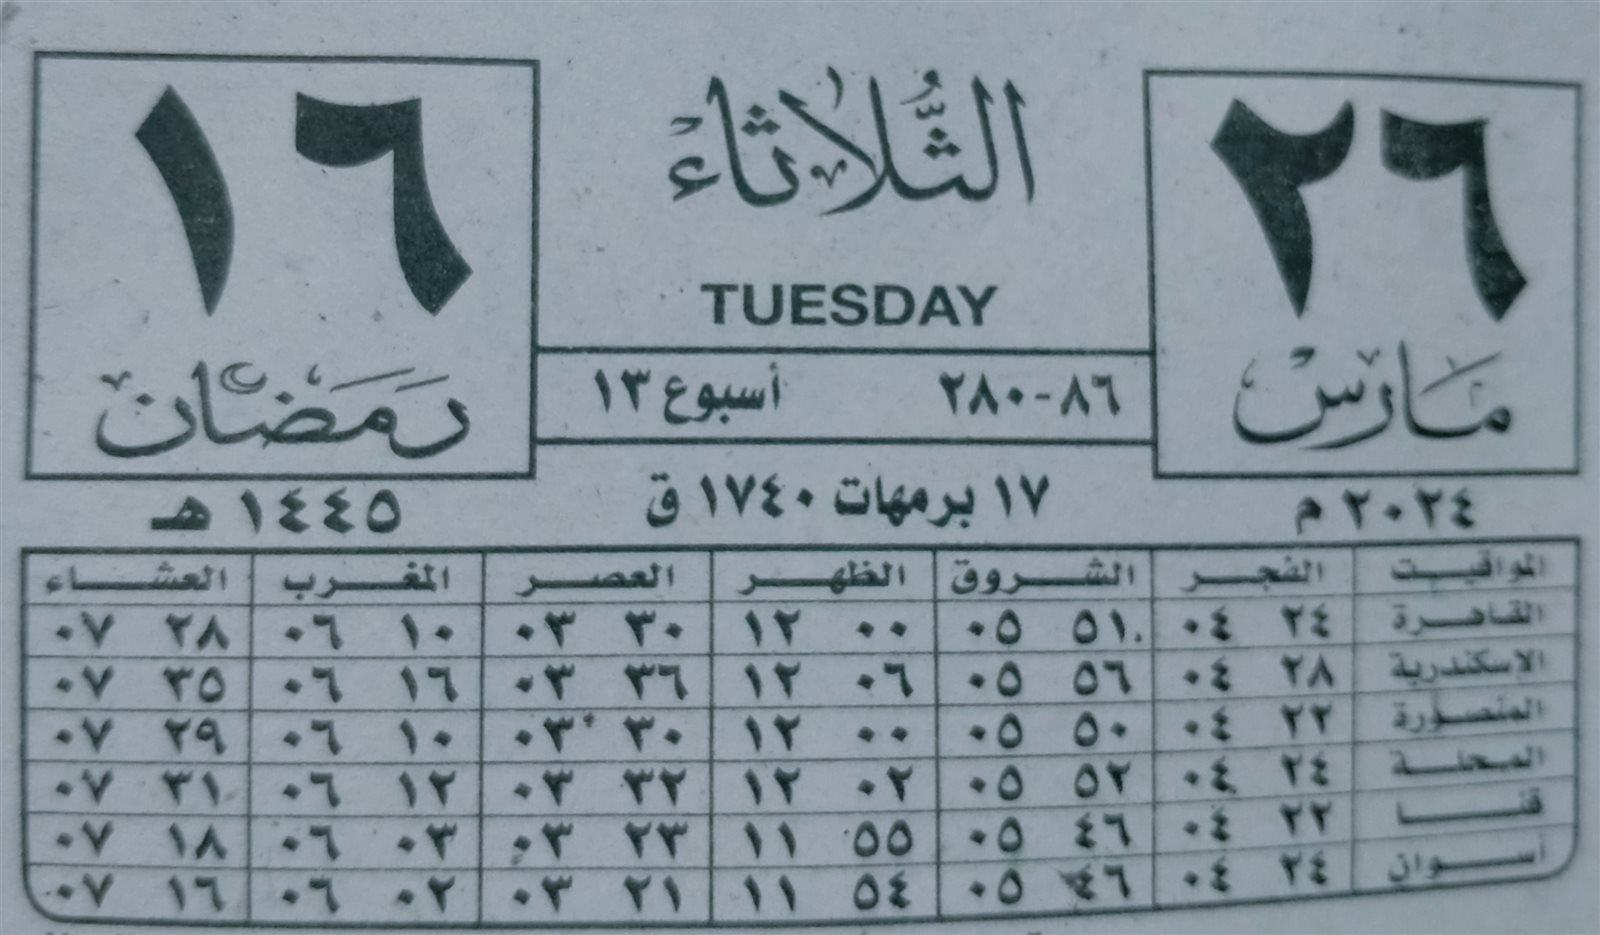 ٢٦ الثلاثاء ١٦
TUESDAY
مارس ٨٦-٢٨٠ أسبوع ١٣ رمضان
٢٠٢٤ م ١٧ برمهات ١٧٤٠ ق ١٤٤٥ هـ
المواقيت الفجر الشروق الظهر العصر المغرب العشاء
القاهرة ٢٤ ٠٤ ٥١ ٠٥ ٠٠ ١٢ ٣٠ ٠٣ ١٠ ٠٦ ٢٨ ٠٧
الاسكندرية ٢٨ ٠٤ ٥٦ ٠٥ ٠٦ ١٢ ٣٦ ٠٣ ١٦ ٠٦ ٣٥ ٠٧
المنصورة ٢٢ ٠٤ ٥٠ ٠٥ ٠٠ ١٢ ٣٠ ٠٣ ١٠ ٠٦ ٢٩ ٠٧
المحلة ٢٤ ٠٤ ٥٢ ٠٥ ٠٢ ١٢ ٣٢ ٠٣ ١٢ ٠٦ ٣١ ٠٧
قنا ٢٢ ٠٤ ٤٦ ٠٥ ٥٥ ١١ ٢٣ ٠٣ ٠٣ ٠٦ ١٨ ٠٧
أسوان ٢٤ ٠٤ ٤٦ ٠٥ ٥٤ ١١ ٢١ ٠٣ ٠٢ ٠٦ ١٦ ٠٧